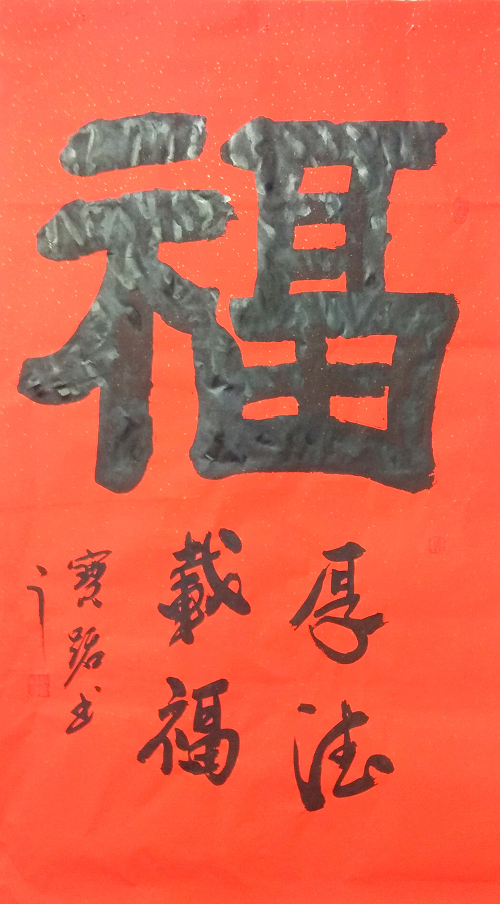 福
厚德
載福
寶书